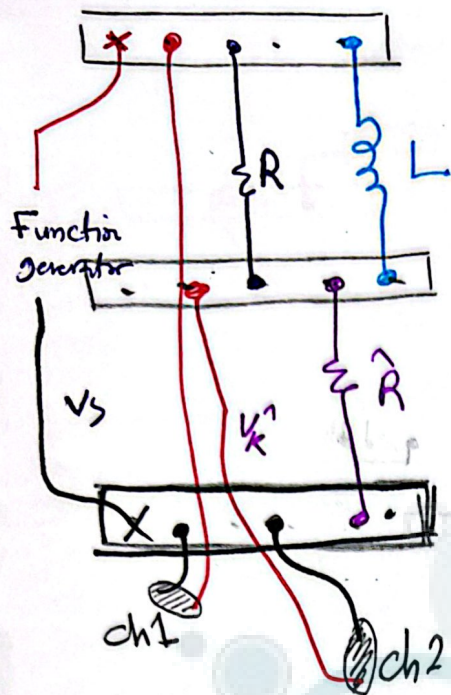 R
L
Function
generator
Vs
R̂
ch1
ch2